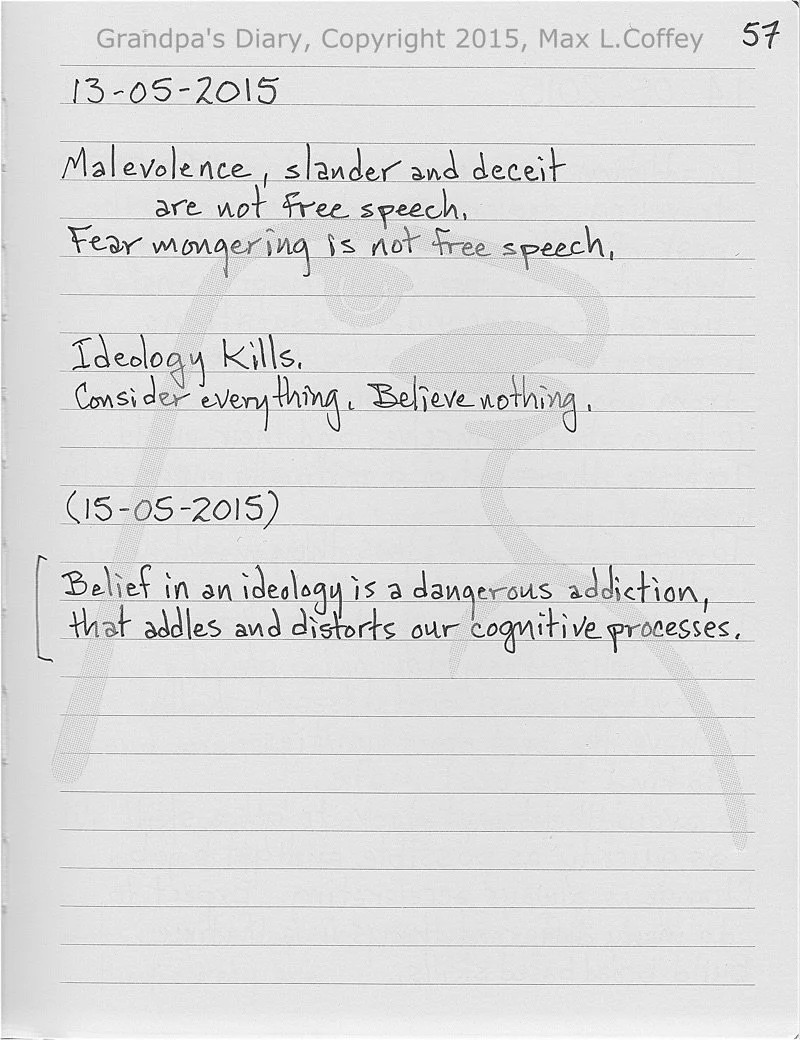 Grandpa's Diary, Copyright 2015, Max L.Coffey 57
13-05-2015
Malevolence, slander and deceit
are not free speech.
Fear mongering is not free speech.
Ideology Kills.
Consider everything. Believe nothing.
(15-05-2015)
Belief in an ideology is a dangerous addiction,
that addles and distorts our cognitive processes.